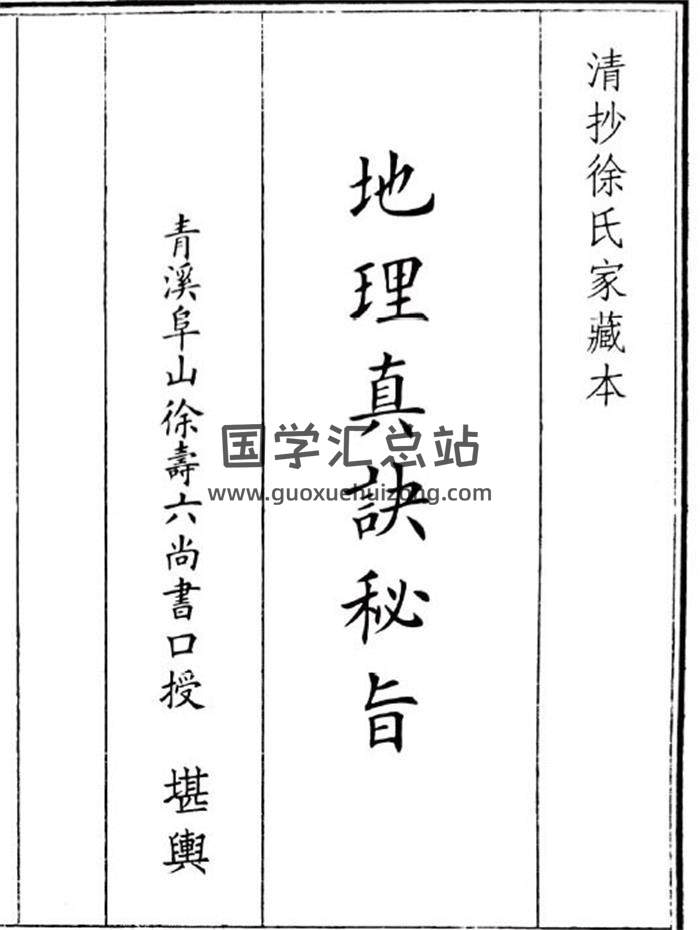 清抄徐氏家藏本
地理真訣秘旨
青溪阜山徐壽六尚書口授 堪輿
国学汇总站
www.guoxuehuizong.com